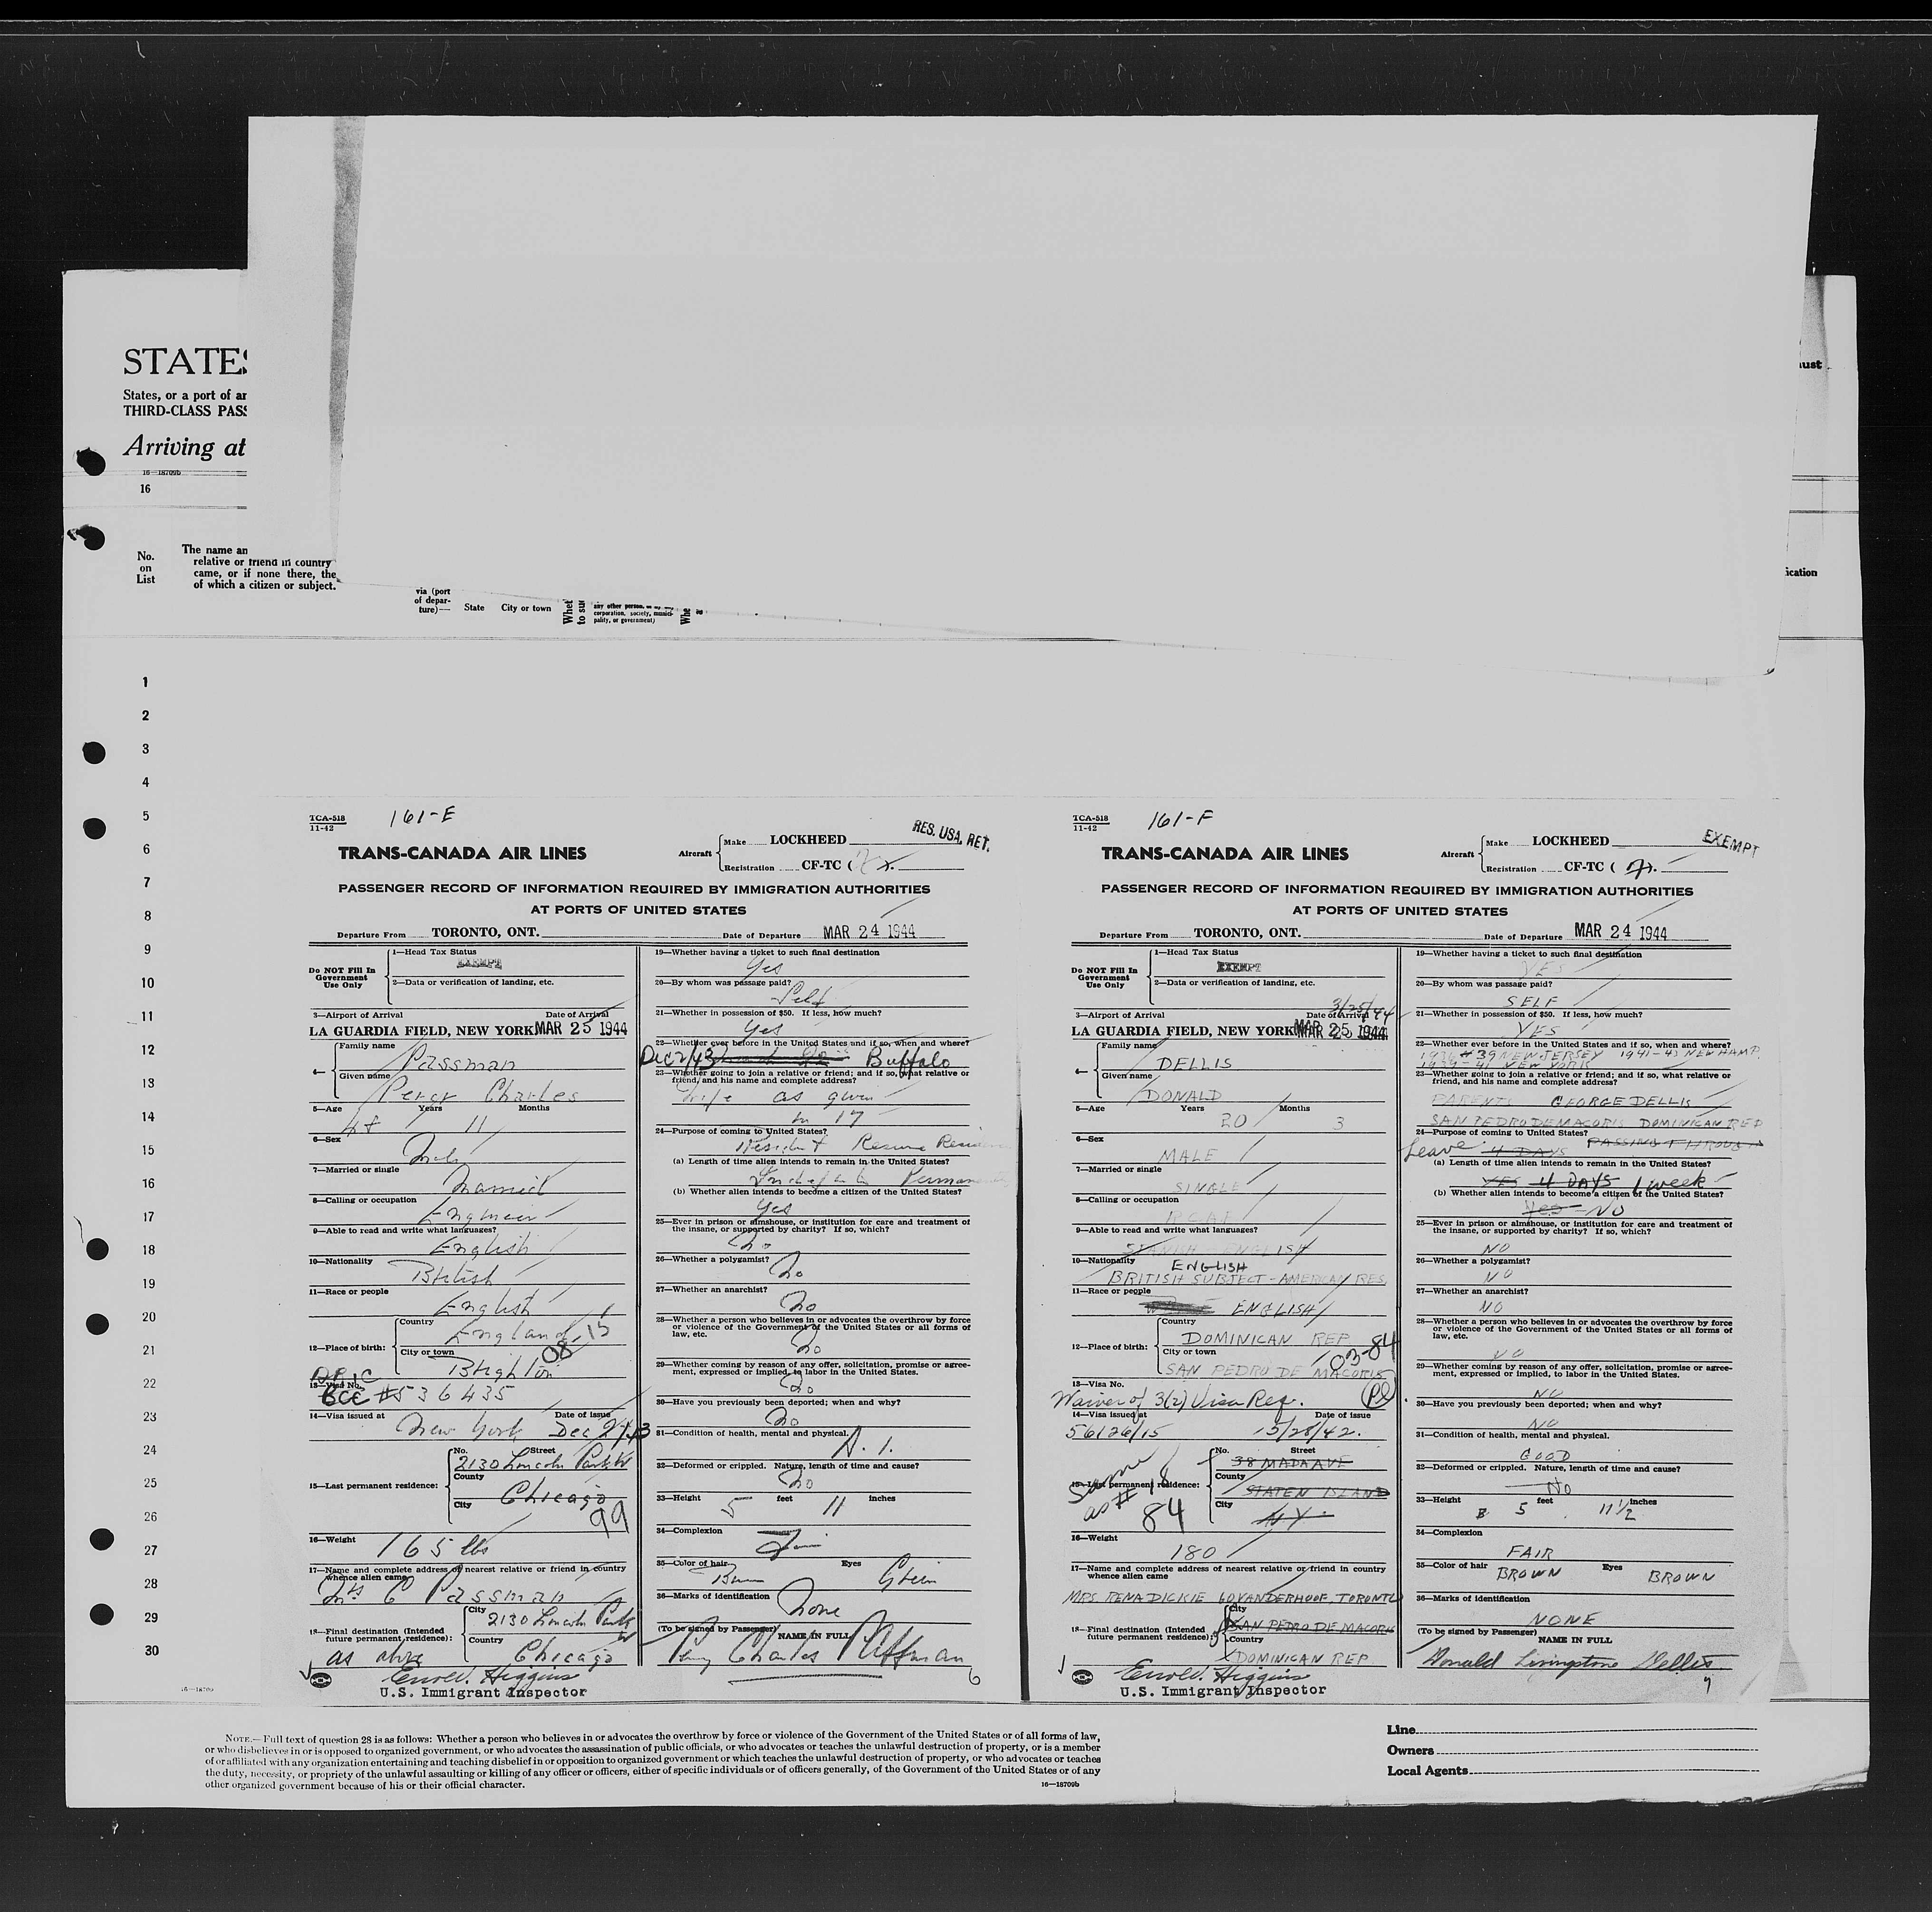 STATES
States, or a port of an
THIRD-CLASS PASS
Arriving at
16—18709b
16
ust
ication
No.
on
List
The name an
relative or friend in country
came, or if none there, the
of which a citizen or subject.
via (port
of depar-
ture)—
State
City or town
Whet
to su
any other person,
corporation, society, munici-
pality, or government)
Whe
1
2
3
4
5
6
7
8
9
10
11
12
13
14
15
16
17
18
19
20
21
22
23
24
25
26
27
28
29
30
TCA-518
11-42
161-E
TRANS-CANADA AIR LINES
Aircraft
Make LOCKHEED
Registration CF-TC (
RES. USA. RET.
PASSENGER RECORD OF INFORMATION REQUIRED BY IMMIGRATION AUTHORITIES
AT PORTS OF UNITED STATES
Departure From TORONTO, ONT. Date of Departure MAR 24 1944
Do NOT Fill In
Government
Use Only
1—Head Tax Status
EXEMPT
2—Data or verification of landing, etc.
3—Airport of Arrival Date of Arrival
LA GUARDIA FIELD, NEW YORK MAR 25 1944
4—
Family name
Passman
Given name
Percy Charles
5—Age Years Months
48 11
6—Sex
Male
7—Married or single
Married
8—Calling or occupation
Engineer
9—Able to read and write what languages?
English
10—Nationality
British
11—Race or people
English
12—Place of birth:
Country
England 15
City or town
Brighton 08
13—Visa No.
BCC #536435
14—Visa issued at Date of issue
New York Dec 2/43
15—Last permanent residence:
No. Street
2130 Lincoln Park W
County
City
Chicago
99
16—Weight
165 lbs
17—Name and complete address of nearest relative or friend in country
whence alien came
Mrs C Passman
18—Final destination (Intended
future permanent residence):
City
2130 Lincoln Park W
Country
Chicago
as above
Errol V. Higgins
U.S. Immigrant Inspector
19—Whether having a ticket to such final destination
Yes
20—By whom was passage paid?
Self
21—Whether in possession of $50. If less, how much?
Yes
22—Whether ever before in the United States and if so, when and where?
Dec 2/43 Buffalo
23—Whether going to join a relative or friend; and if so, what relative or
friend, and his name and complete address?
Wife as given
in 17
24—Purpose of coming to United States?
Resident Resume Resi
(a) Length of time alien intends to remain in the United States?
Perman
(b) Whether alien intends to become a citizen of the United States?
Yes
25—Ever in prison or almshouse, or institution for care and treatment of
the insane, or supported by charity? If so, which?
No
26—Whether a polygamist?
No
27—Whether an anarchist?
No
28—Whether a person who believes in or advocates the overthrow by force
or violence of the Government of the United States or all forms of
law, etc.
No
29—Whether coming by reason of any offer, solicitation, promise or agree-
ment, expressed or implied, to labor in the United States.
No
30—Have you previously been deported; when and why?
No
31—Condition of health, mental and physical.
A. 1.
32—Deformed or crippled. Nature, length of time and cause?
No
33—Height 5 feet 11 inches
34—Complexion
35—Color of hair Eyes
Green
36—Marks of identification
None
(To be signed by Passenger) NAME IN FULL
Percy Charles Passman
6
TCA-518
11-42
161-F
TRANS-CANADA AIR LINES
Aircraft
Make LOCKHEED
Registration CF-TC (
EXEMPT
PASSENGER RECORD OF INFORMATION REQUIRED BY IMMIGRATION AUTHORITIES
AT PORTS OF UNITED STATES
Departure From TORONTO, ONT. Date of Departure MAR 24 1944
Do NOT Fill In
Government
Use Only
1—Head Tax Status
EXEMPT
2—Data or verification of landing, etc.
3/25/44
3—Airport of Arrival Date of Arrival
LA GUARDIA FIELD, NEW YORK MAR 25 1944
4—
Family name
DELLIS
Given name
DONALD
5—Age Years Months
20 3
6—Sex
MALE
7—Married or single
SINGLE
8—Calling or occupation
RCAF
9—Able to read and write what languages?
SPANISH - ENGLISH
10—Nationality
ENGLISH
BRITISH SUBJECT - AMERICAN RES.
11—Race or people
ENGLISH
12—Place of birth:
Country
DOMINICAN REP
City or town
SAN PEDRO DE MACORIS
03-84
13—Visa No.
Waiver of 3(2) Visa Req.
14—Visa issued at Date of issue
56126/15 15/28/42.
15—Last permanent residence:
Same
as #18
84
No. Street
38 MADA AVE
County
STATEN ISLAND
City
N.Y.
16—Weight
180
17—Name and complete address of nearest relative or friend in country
whence alien came
MRS. RENA DICKIE 60 VANDERHOOF, TORONTO
18—Final destination (Intended
future permanent residence):
City
SAN PEDRO DE MACORIS
Country
DOMINICAN REP.
Errol V. Higgins
U.S. Immigrant Inspector
19—Whether having a ticket to such final destination
YES
20—By whom was passage paid?
SELF
21—Whether in possession of $50. If less, how much?
YES
22—Whether ever before in the United States and if so, when and where?
1936-39 NEW JERSEY 1941-43 NEW HAMP.
1939-41 NEW YORK
23—Whether going to join a relative or friend; and if so, what relative or
friend, and his name and complete address?
PARENTS GEORGE DELLIS
SAN PEDRO DE MACORIS DOMINICAN REP
24—Purpose of coming to United States? PASSING THROUGH
Leave 4 DAYS
(a) Length of time alien intends to remain in the United States?
YES 4 DAYS 1 week
(b) Whether alien intends to become a citizen of the United States?
Yes - NO
25—Ever in prison or almshouse, or institution for care and treatment of
the insane, or supported by charity? If so, which?
NO
26—Whether a polygamist?
NO
27—Whether an anarchist?
NO
28—Whether a person who believes in or advocates the overthrow by force
or violence of the Government of the United States or all forms of
law, etc.
NO
29—Whether coming by reason of any offer, solicitation, promise or agree-
ment, expressed or implied, to labor in the United States.
NO
30—Have you previously been deported; when and why?
NO
31—Condition of health, mental and physical.
GOOD
32—Deformed or crippled. Nature, length of time and cause?
No
33—Height 5 feet 11½ inches
34—Complexion
FAIR
35—Color of hair BROWN Eyes BROWN
36—Marks of identification
NONE
(To be signed by Passenger)
NAME IN FULL
Donald Livingstone Dellis
7
16—18709
NOTE.—Full text of question 28 is as follows: Whether a person who believes in or advocates the overthrow by force or violence of the Government of the United States or of all forms of law,
or who disbelieves in or is opposed to organized government, or who advocates the assassination of public officials, or who advocates or teaches the unlawful destruction of property, or is a member
of or affiliated with any organization entertaining and teaching disbelief in or opposition to organized government or which teaches the unlawful destruction of property, or who advocates or teaches
the duty, necessity, or propriety of the unlawful assaulting or killing of any officer or officers, either of specific individuals or of officers generally, of the Government of the United States or of any
other organized government because of his or their official character.
16—18709b
Line
Owners
Local Agents